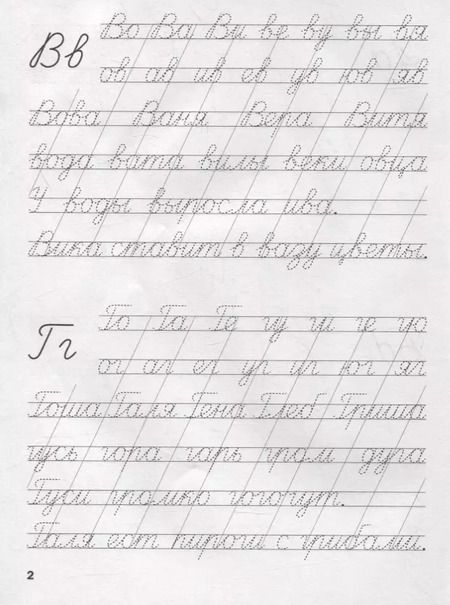 Вв
Во Ва Ви ве ву вы вя
ов ав ив ев ув юв яв
Вова Ваня Вера Витя
вода вата вилы веки овца
У воды выросла ива.
Вика ставит в вазу цветы.
Гг
Го Га Ге гу ги ге го
ог аг ег уг иг юг яг
Гоша Галя Гена Глеб Гриша
гусь гора гарь гром дуга
Гуси громко гогочут.
Галя ест пироги с грибами.
2